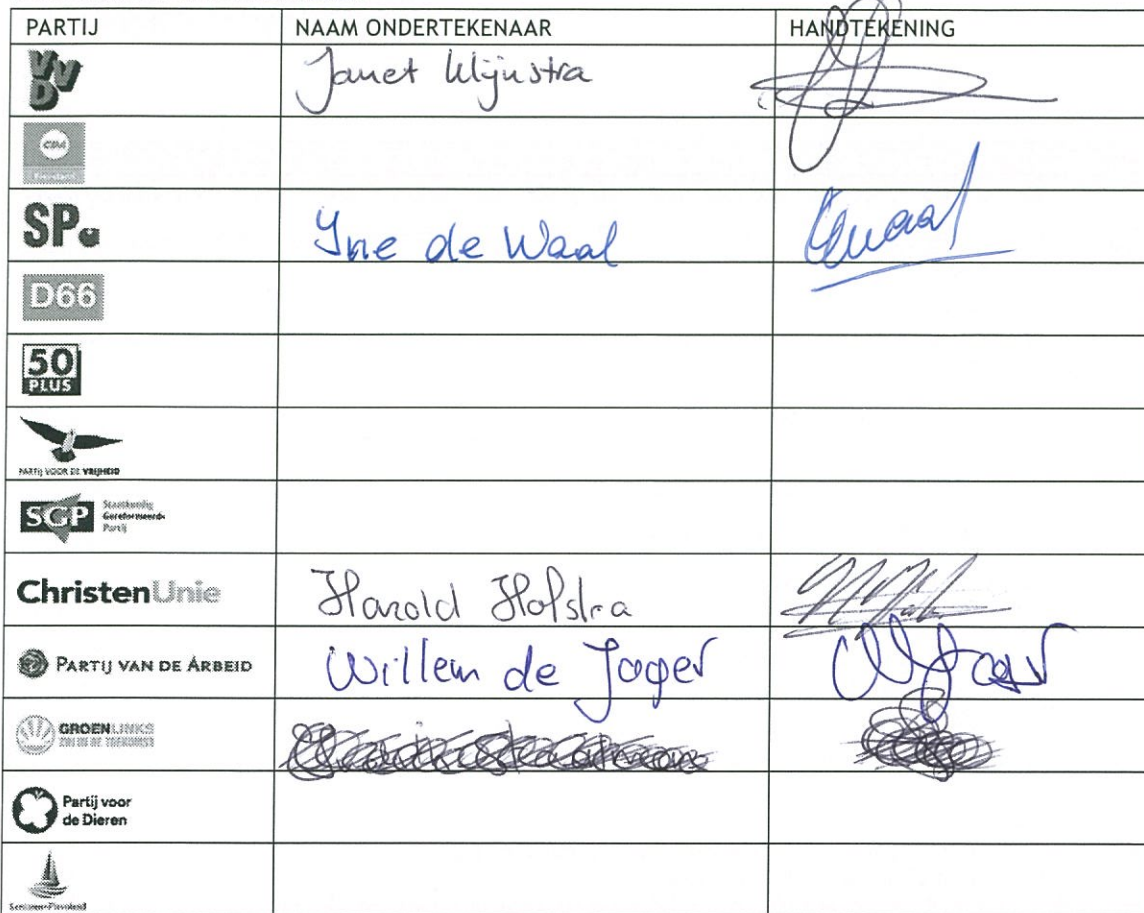 PARTIJ NAAM ONDERTEKENAAR HANDTEKENING
VVD Janet Wijnstra
CDA
Flevoland
SP. Yne de Waal
D66
50
PLUS
PARTIJ VOOR DE VRIJHEID
SGP Staatkundig
Gereformeerde
Partij
ChristenUnie Harold Hofstra
PARTIJ VAN DE ARBEID Willem de Jager
GROENLINKS
Partij voor
de Dieren